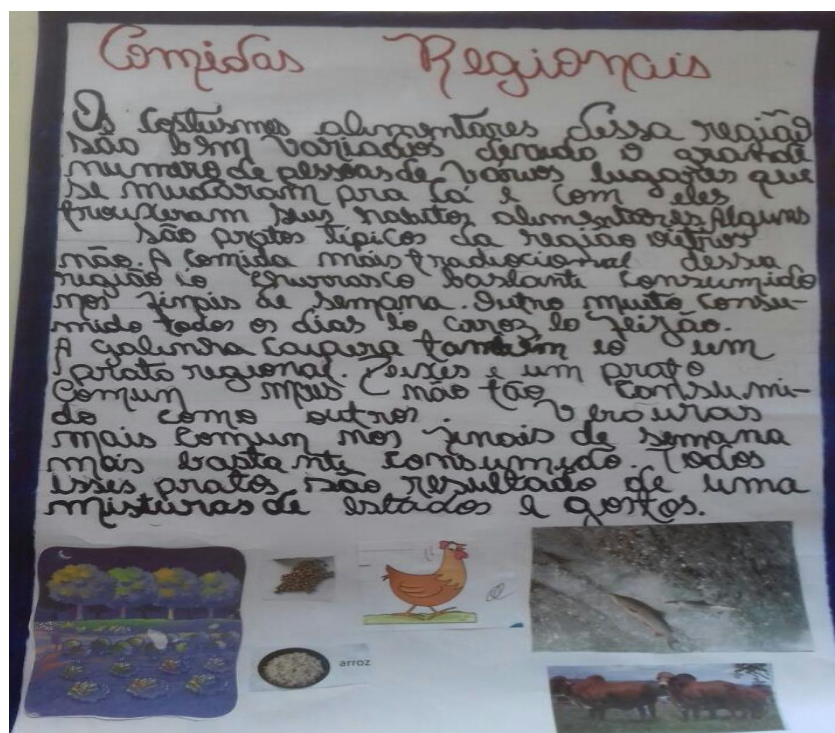 Comidas Regionais
Os costusmes alimentares dessa região
são bem variados devido o grande
numero de pessoas de vários lugares que
se mudaram pra cá e com eles
trouxeram seus habitos alimentares. Alguns
são pratos típicos da região outros
não. A comida mais tradiocional dessa
região é o churrasco bastante consumido
nos finais de semana. Outro muito consu-
mido todos os dias é o arroz e o feijão.
A galinha caipira também é o um
prato regional. Peixes é um prato
comun mais não tão consumi-
do como outros. Verduras
mais comun nos finais de semana
mais bastante consumido. Todos
esses pratos são resultado de uma
misturas de estados e gostos.
arroz